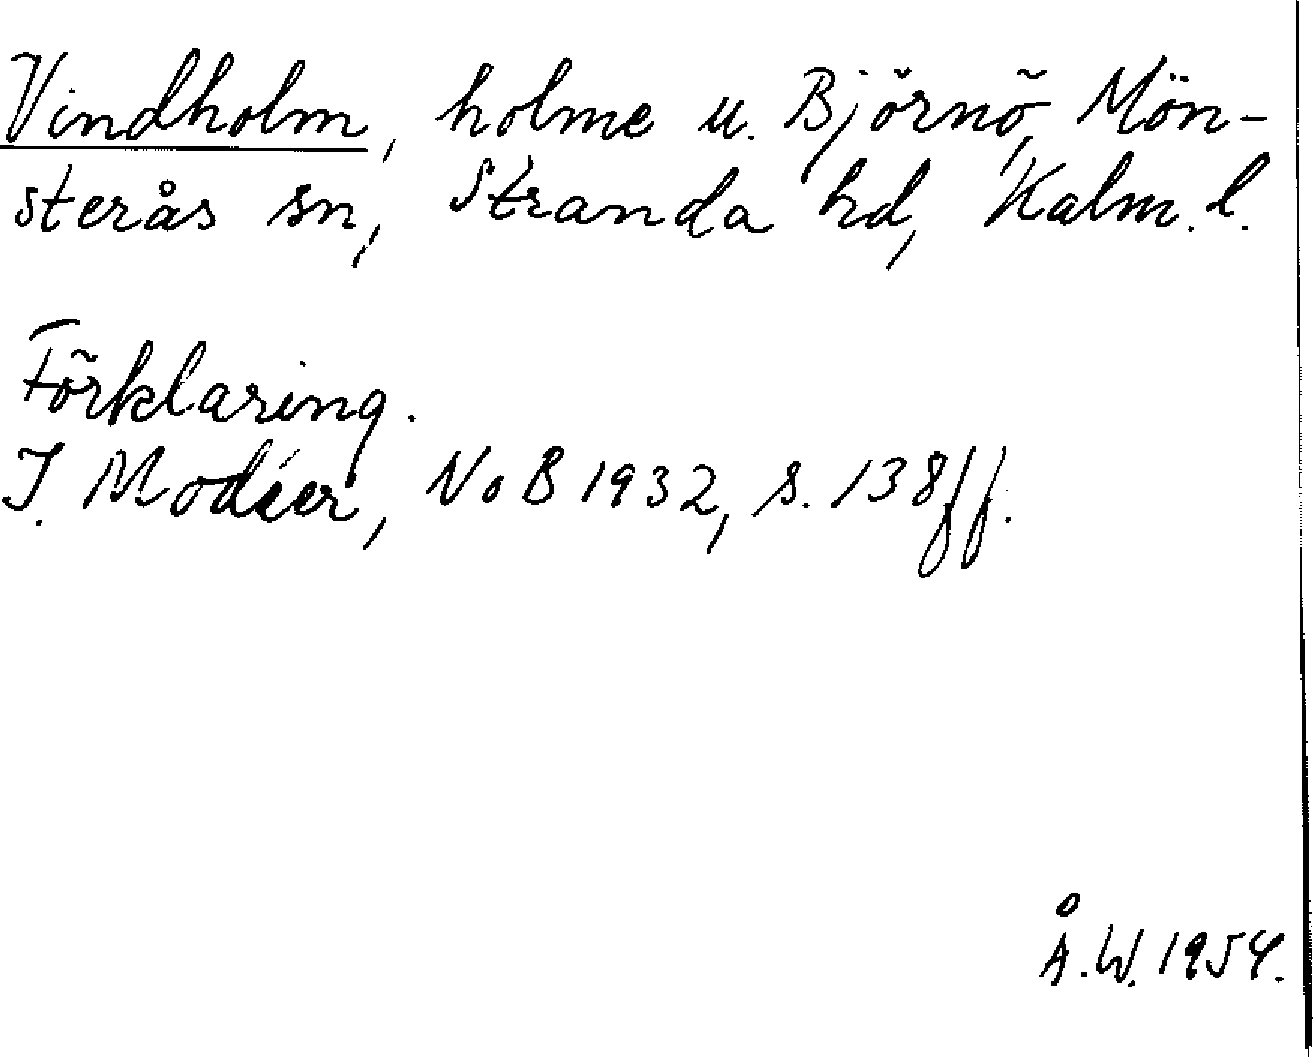 Vindholm, holme u. Björnö, Mön-
sterås sn, Stranda hd, Kalm. l.
Förklaring.
I. Modéer, NoB 1932, s. 138 ff.
Å.W. 1954.